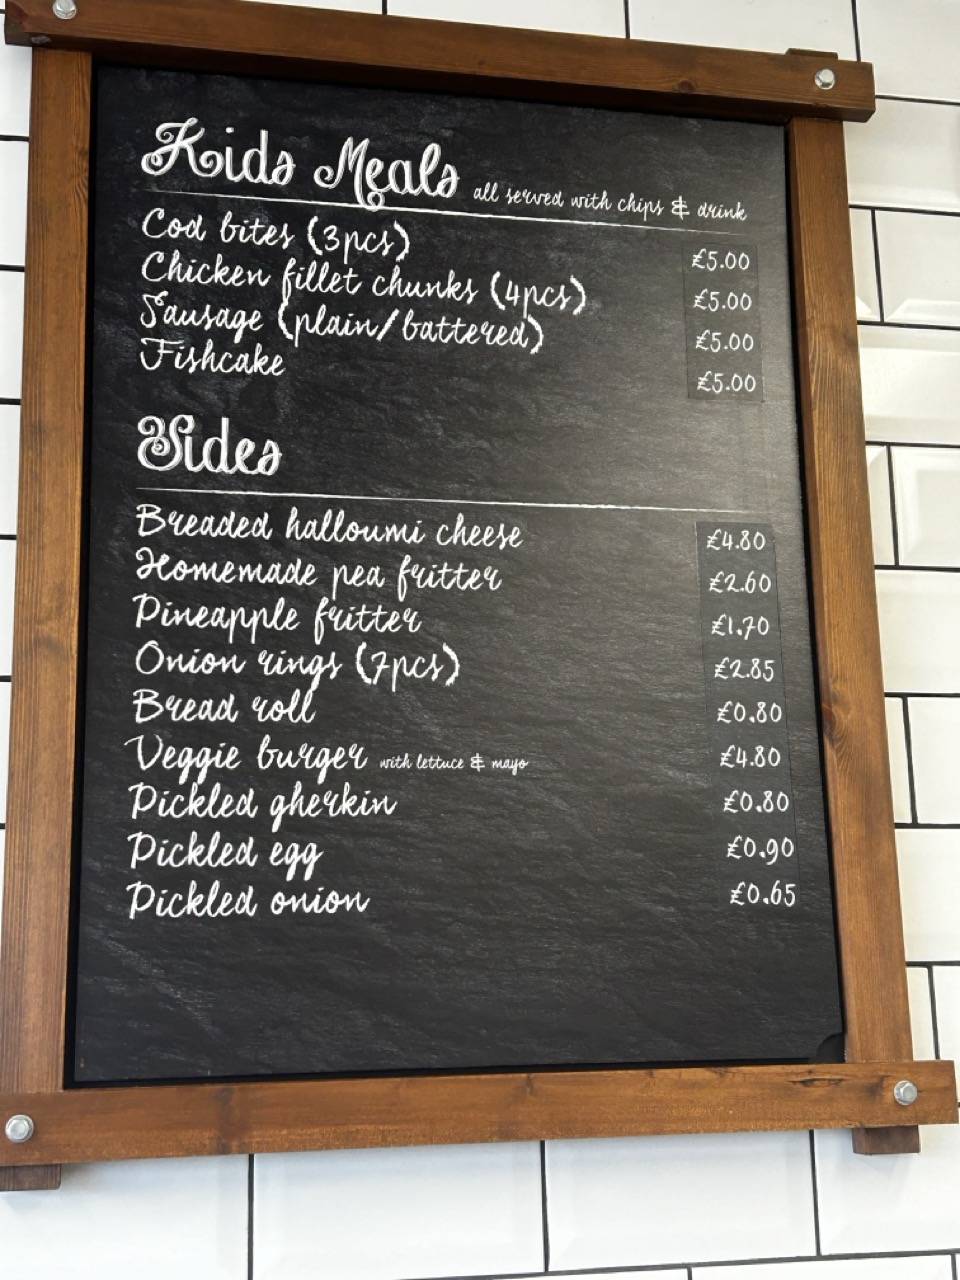 Kids Meals all served with chips & drink
Cod bites (3pcs) £5.00
Chicken fillet chunks (4pcs) £5.00
Sausage (plain/battered) £5.00
Fishcake £5.00
Sides
Breaded halloumi cheese £4.80
Homemade pea fritter £2.60
Pineapple fritter £1.70
Onion rings (7pcs) £2.85
Bread roll £0.80
Veggie burger with lettuce & mayo £4.80
Pickled gherkin £0.80
Pickled egg £0.90
Pickled onion £0.65